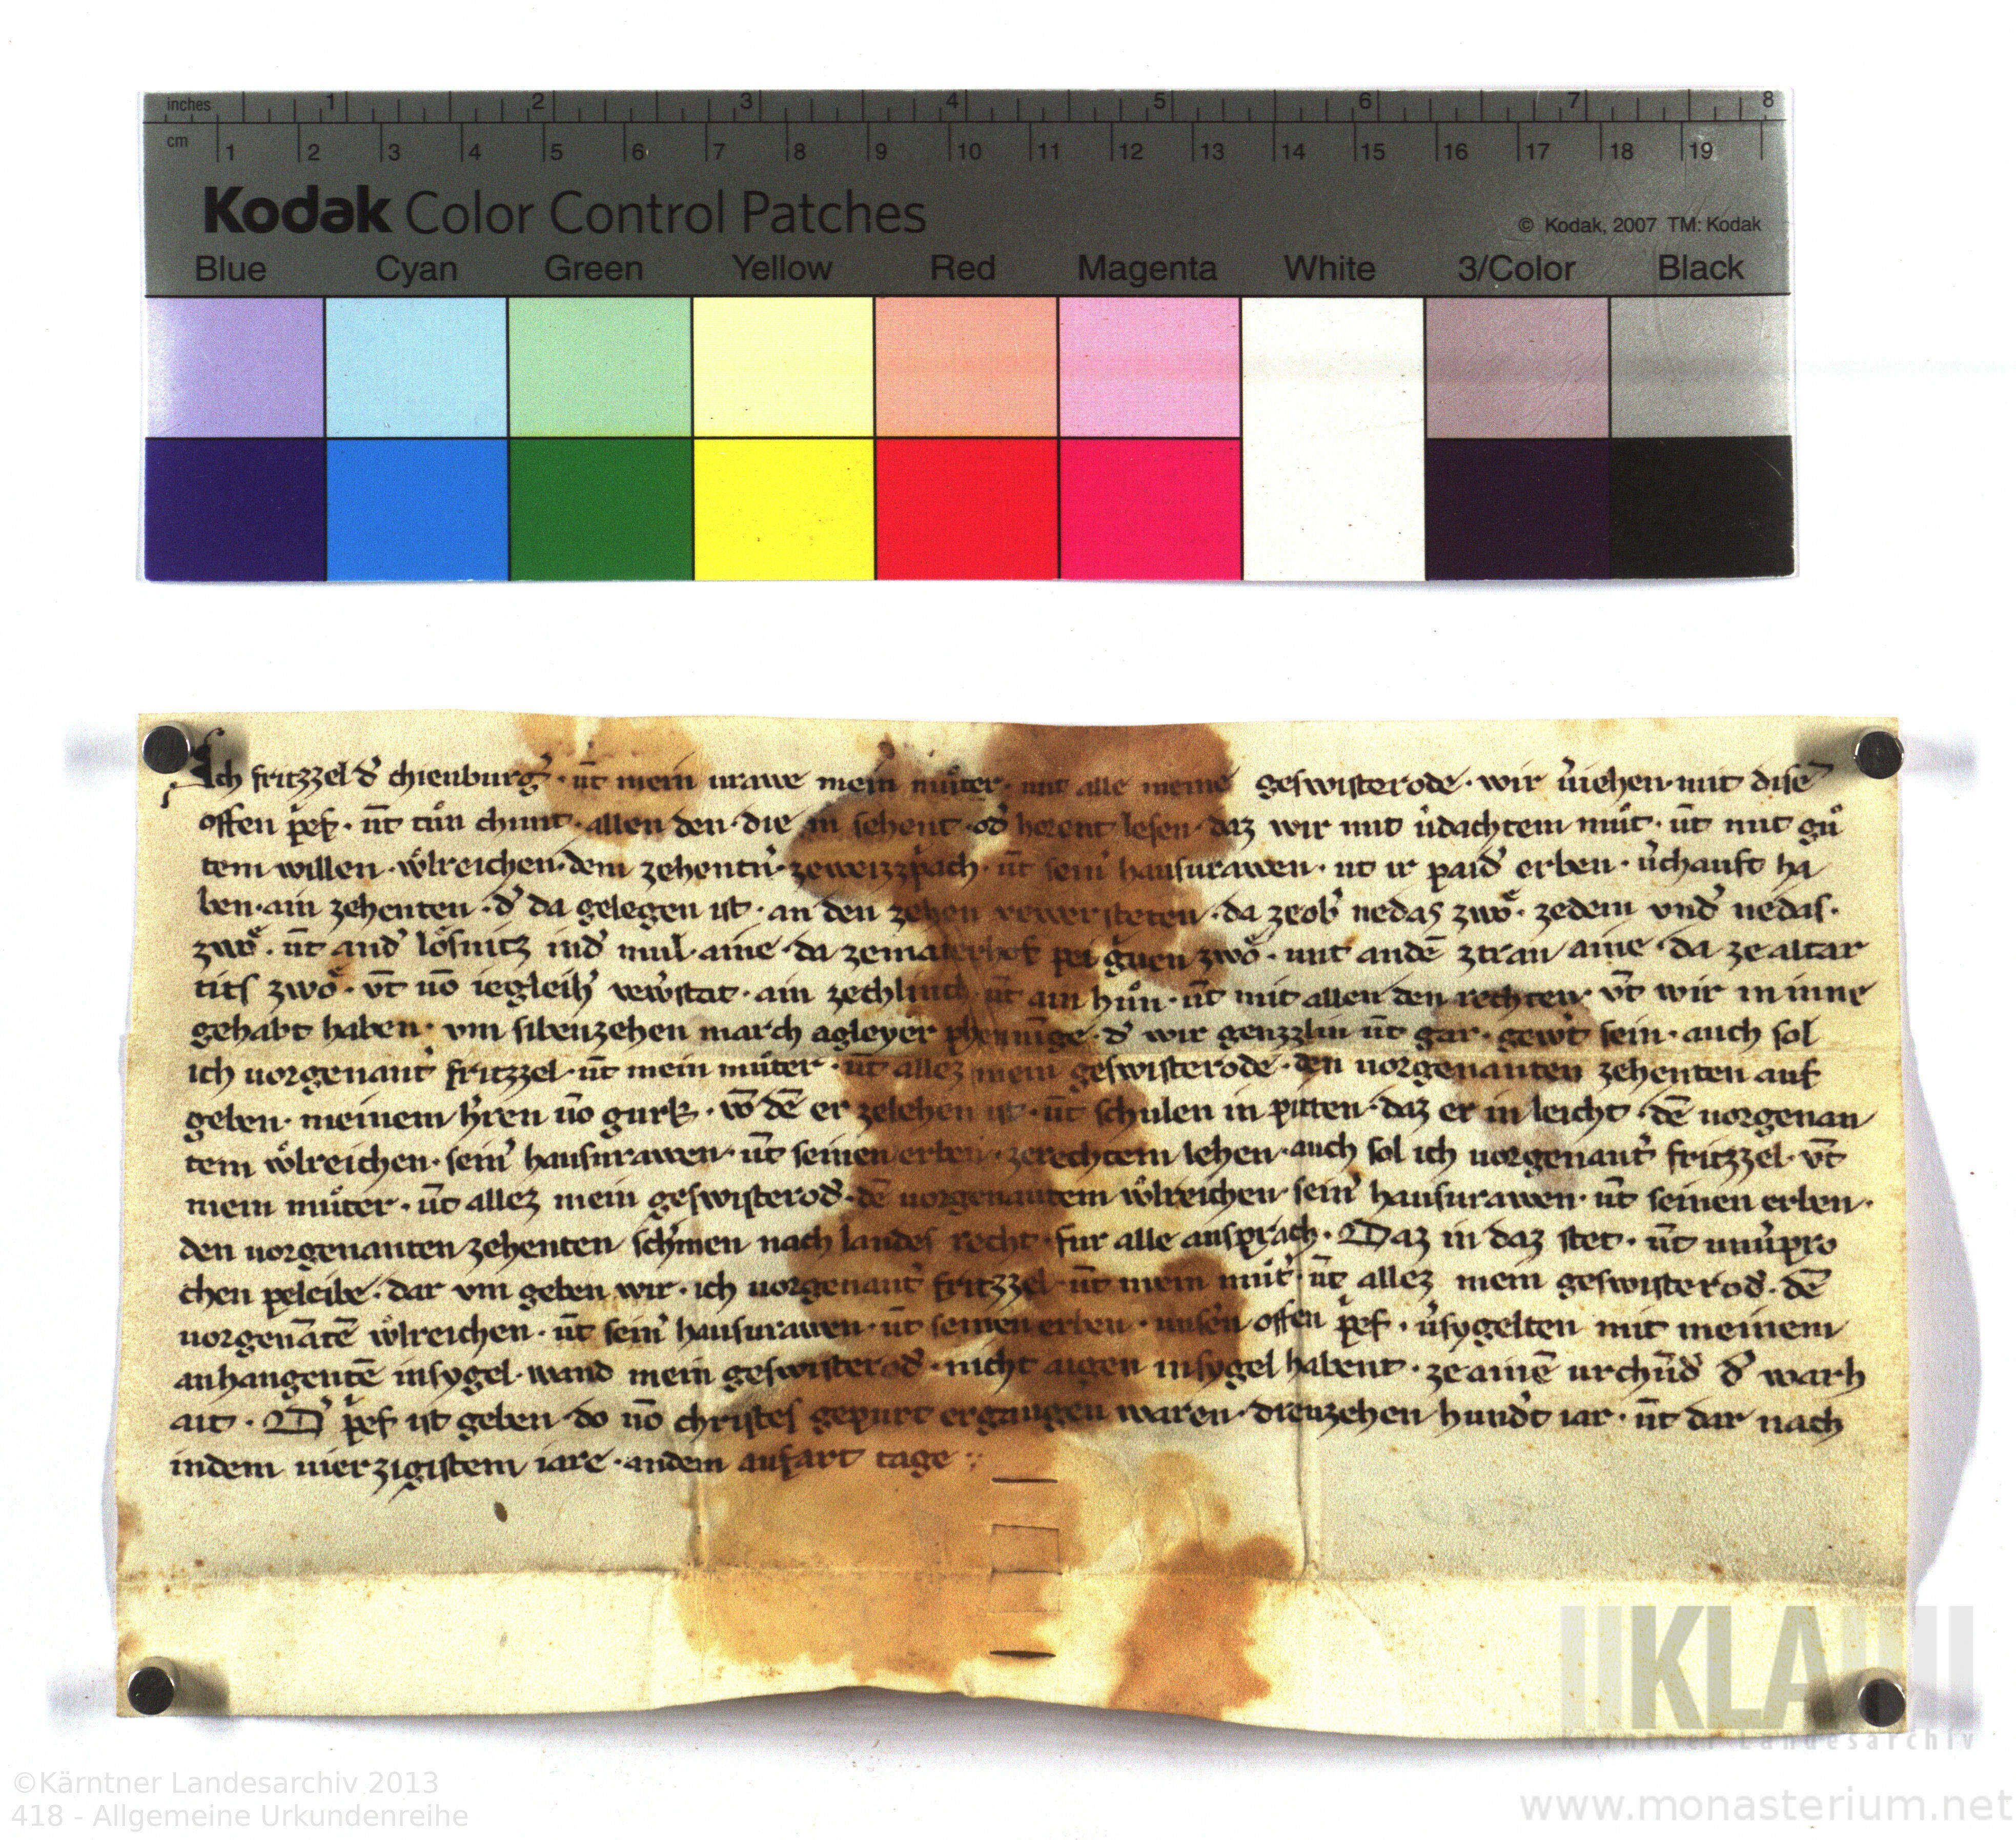 inches 1 2 3 4 5 6 7 8
cm 1 2 3 4 5 6 7 8 9 10 11 12 13 14 15 16 17 18 19
Kodak Color Control Patches
© Kodak, 2007 TM: Kodak
Blue Cyan Green Yellow Red Magenta White 3/Color Black
Ich fritzzel d̛ chienburg̛ · un̄t mein urawe mein̛ můter · mit alle meine geswisterode · wir v̛iehen · mit disē
offen p̛ef · un̄t tůn chunt · allen den · die in sehent · od̛ horent lesen · daz wir mit v̛dachtem můt · un̄t mit gů
tem willen · wͦlreichen · dem zehentn̛ · zeweizzpach · un̄t sein̛ hausurawen · ut ir paid̛ erben · v̛chauft ha
ben · ain zehenten · d̛ da gelegen ist · an den zehen steten · da zeob̛ nedas zwͦ · zedem und̛ nedas ·
zwͦ · un̄t and̛ lösnitz ind̛ mul · aine · da zemaierhof pei zwͦ · mit andē ztran aine · da ze altar
tits zwͦ · vn̄t uō iegleih̛ · ain zechlinch un̄t ain hůn · un̄t mit allen den rechten · vn̄t wir in inne
gehabt haben · vm sibenzehen march agleyer phenninge · d̛ wir genzzlin un̄t gar · gew̛t sein · auch sol
ich uorgenant̛ fritzzel · un̄t mein můter · un̄t allez mein geswisterode · den uorgenanten zehenten auf
geben · meinem h̛ren uō gurk · vō dē er zelehen ist · un̄t schulen in pitten · daz er in leicht · dē uorgenan
tem wͦlreichen · sein̛ hausurawen · un̄t seinen erben · zerechtem lehen · auch sol ich uorgenant̛ fritzzel · vn̄t
mein můter · un̄t allez mein geswisterod̛ · dē uorgenantem wͦlreichen · sein̛ hausurawen · un̄t seinen erben ·
den uorgenanten zehenten sch̛men nach landes recht · fur alle ansprach · Daz in daz stet · un̄t unv̛pro
chen peleibe · dar vm geben wir · ich uorgenant̛ fritzzel · un̄t mein můt̛ · un̄t allez mein geswisterod̛ · dē
uorgenātē wͦlreichen · un̄t sein̛ hausurawen · un̄t seinen erben · unsē offen p̛ef · v̛sygelten mit meinem
anhangentē insygel · wand mein geswisterod̛ · nicht aigen insygel habent · ze ainē urchūd̛ d̛ warh
ait · D̛ p̛ef ist geben · do uō christes gepurt ergangen waren · dreuzehen hund̛t iar · un̄t dar nach
indem uierzigistem iare · andem aufart tage ·
KLA
Kärntner Landesarchiv
©Kärntner Landesarchiv 2013
418 - Allgemeine Urkundenreihe
www.monasterium.net